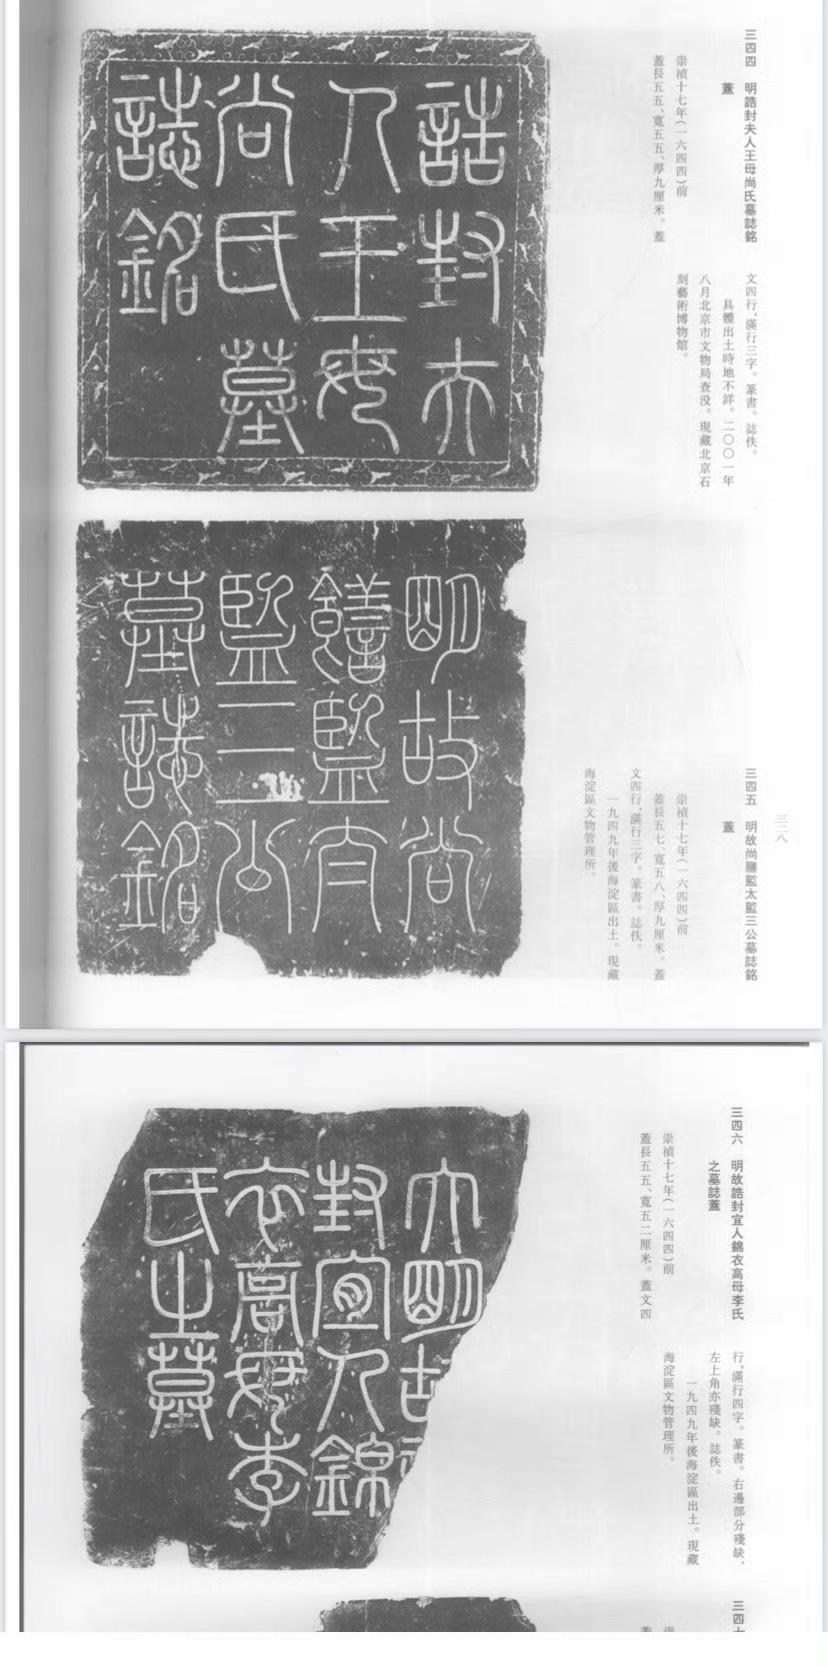 三四四　明誥封夫人王母尚氏墓誌銘
蓋
崇禎十七年(一六四四)前
蓋長五五、寬五五、厚九厘米。蓋
文四行，滿行三字。篆書。誌佚。
具體出土時地不詳。二〇〇一年
八月北京市文物局查没。現藏北京石
刻藝術博物館。
誥封夫
人王母
尚氏墓
誌銘
三二八
三四五　明故尚膳監太監三公墓誌銘
蓋
崇禎十七年(一六四四)前
蓋長五七、寬五八、厚九厘米。蓋
文四行，滿行三字。篆書。誌佚。
一九四九年後海淀區出土。現藏
海淀區文物管理所。
明故尚
膳監太
監三公
墓誌銘
三四六　明故誥封宜人錦衣高母李氏
之墓誌蓋
崇禎十七年(一六四四)前
蓋長五五、寬五二厘米。蓋文四
行，滿行四字。篆書。右邊部分殘缺，
左上角亦殘缺。誌佚。
一九四九年後海淀區出土。現藏
海淀區文物管理所。
大明故
封宜人錦
衣高母李
氏之墓
三四